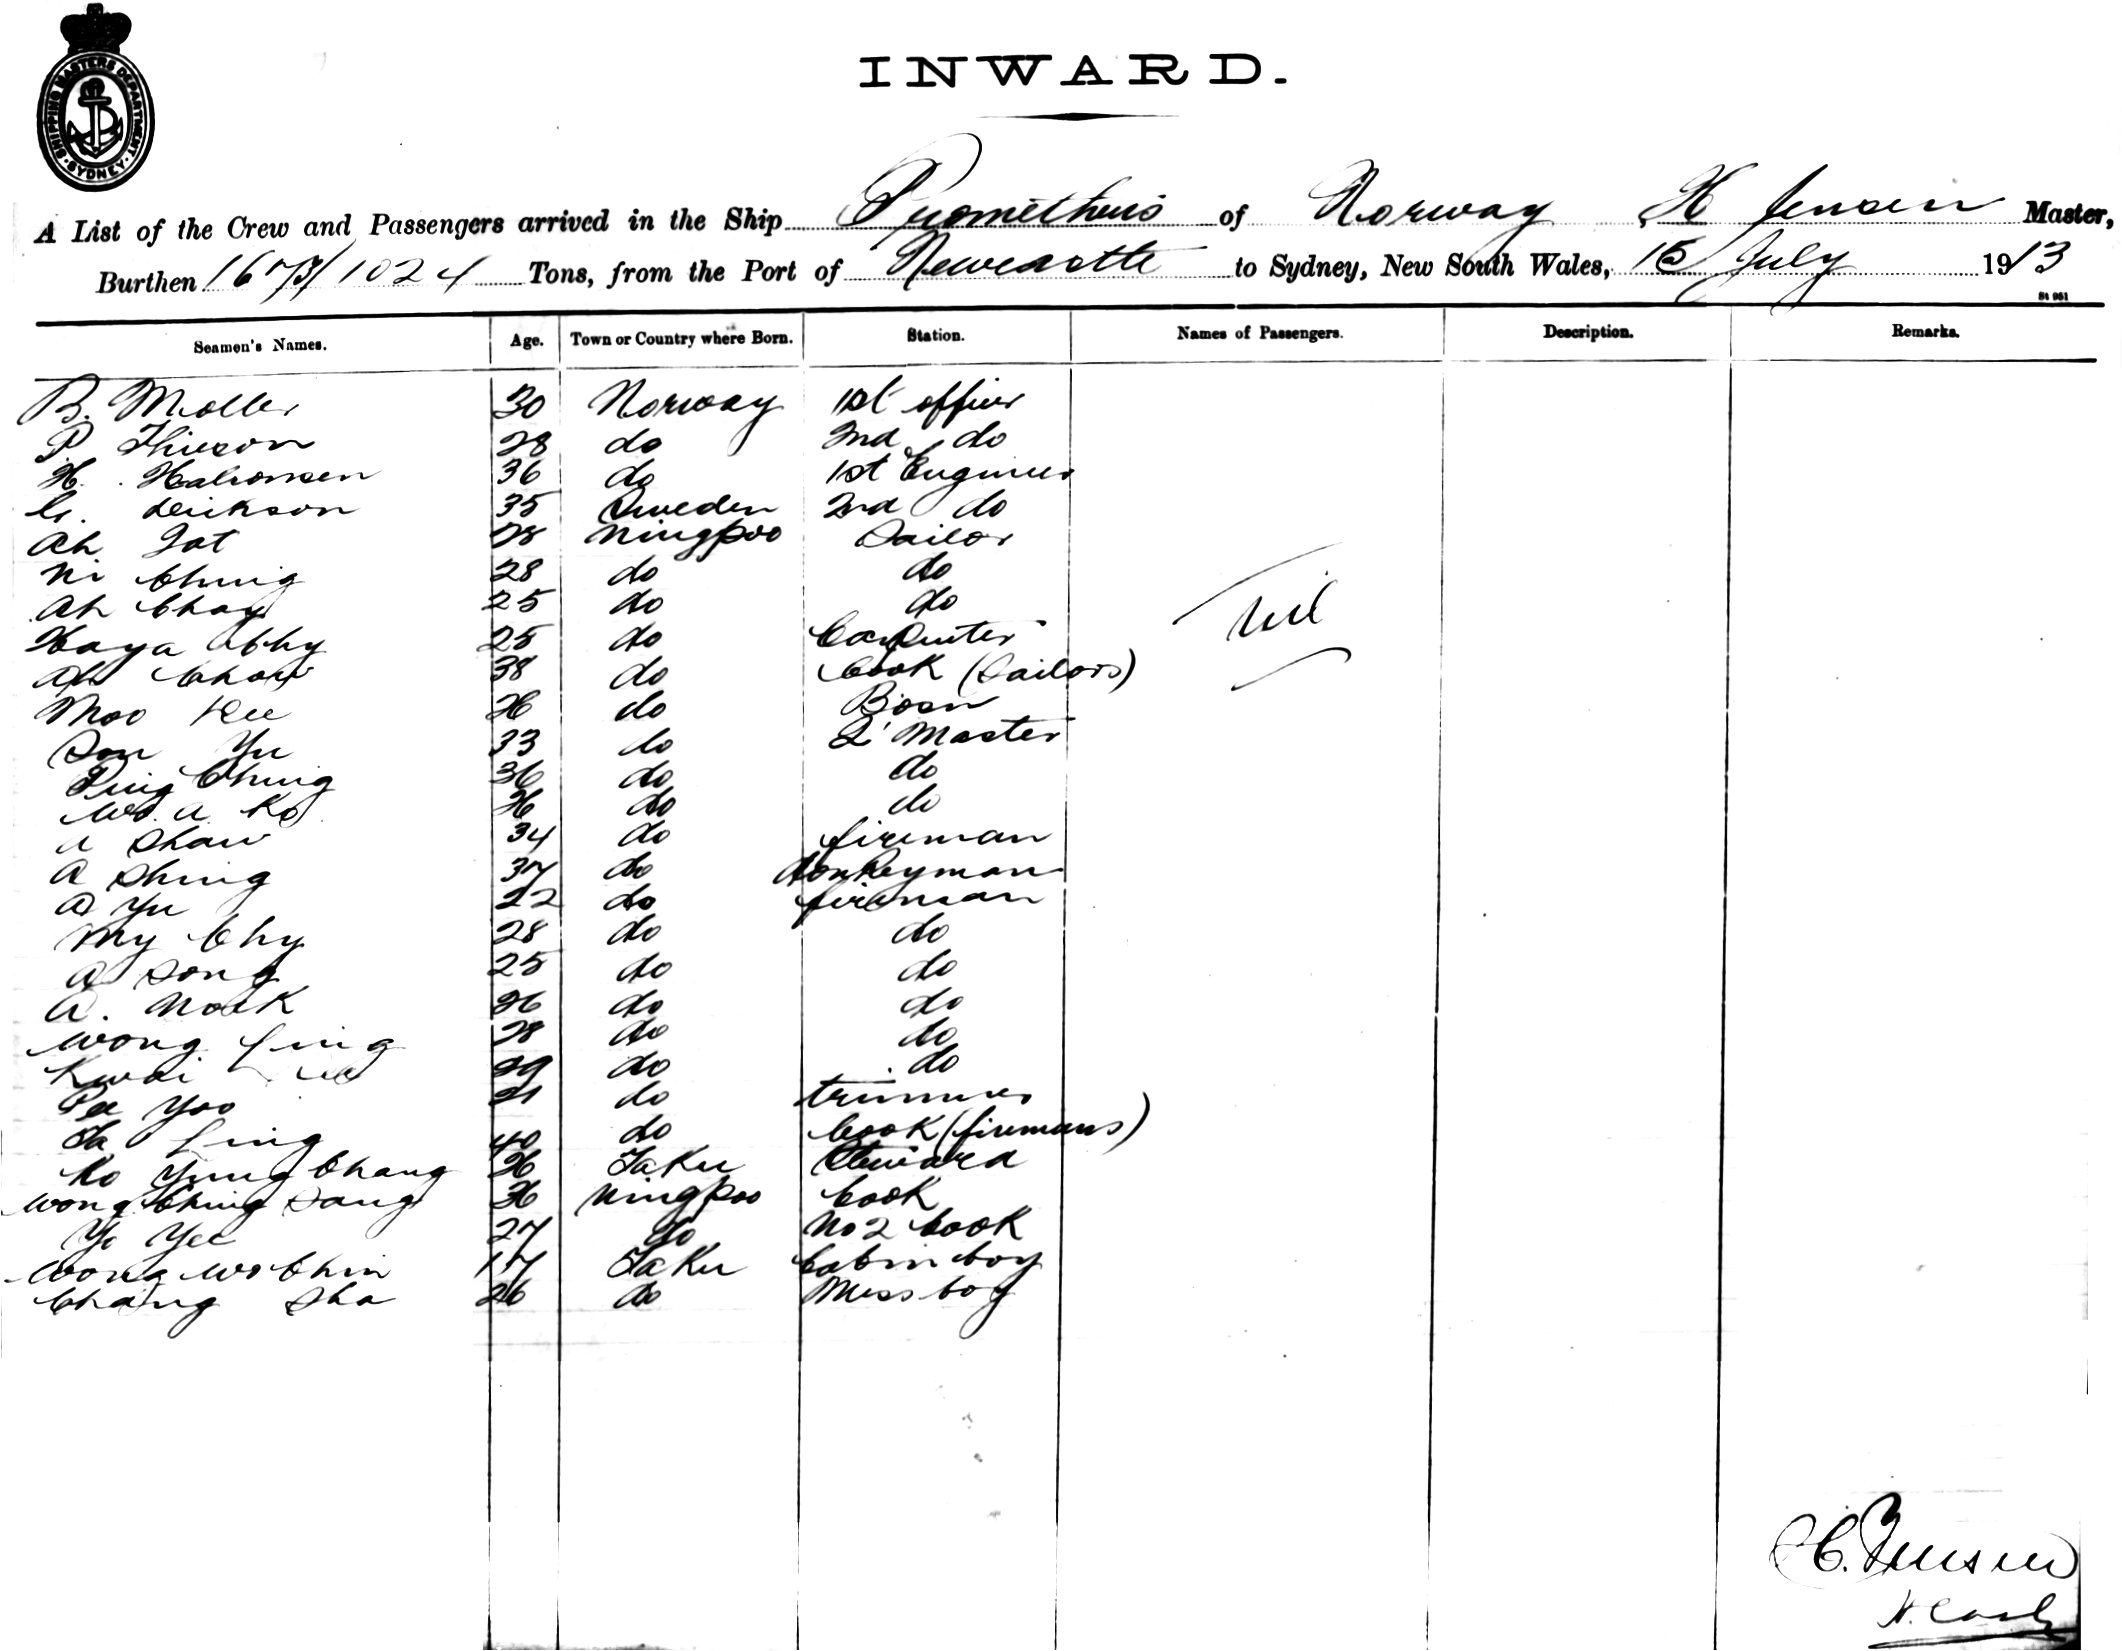 SHIPPING MASTERS DEPARTMENT · SYDNEY ·
INWARD.
A List of the Crew and Passengers arrived in the Ship Prometheus of Norway H Jensen Master,
Burthen 1673/1024 Tons, from the Port of Newcastle to Sydney, New South Wales, 15 July 1913
St 951
Seamen's Names. Age. Town or Country where Born. Station. Names of Passengers. Description. Remarks.
B. Moller 30 Norway 1st officer
P. 28 do 2nd do
H. Halvorsen 36 do 1st Engineer
Erickson 35 Sweden 2nd do
Ah 28 Ningpoo Sailor
Ni Ching 28 do do
Ah Chay 25 do do
Nil
Kaya Chy 25 do Carpenter
Ah Chow 38 do Cook (Sailors)
Moo Kee do Bosn
Son Yu 33 do Q' Master
Ping Ching 36 do do
Wo. A. Ko do do
A Shaw 34 do fireman
A Shing 37 do donkeyman
A Yu 22 do fireman
My Chy 28 do do
A Song 25 do do
A. Nock 26 do do
Wong Ling 28 do do
Kwai 29 do do
Pee Yoo 21 do trimmer
Ta Ling 40 do Cook (firemans)
Ko Yung Chang Taku Steward
Wong Ching Sang Ningpoo Cook
Yo Yee 27 do No 2 Cook
Wong Wo Chin 17 Taku Cabin boy
Chang Sha 26 do Mess boy
Jensen